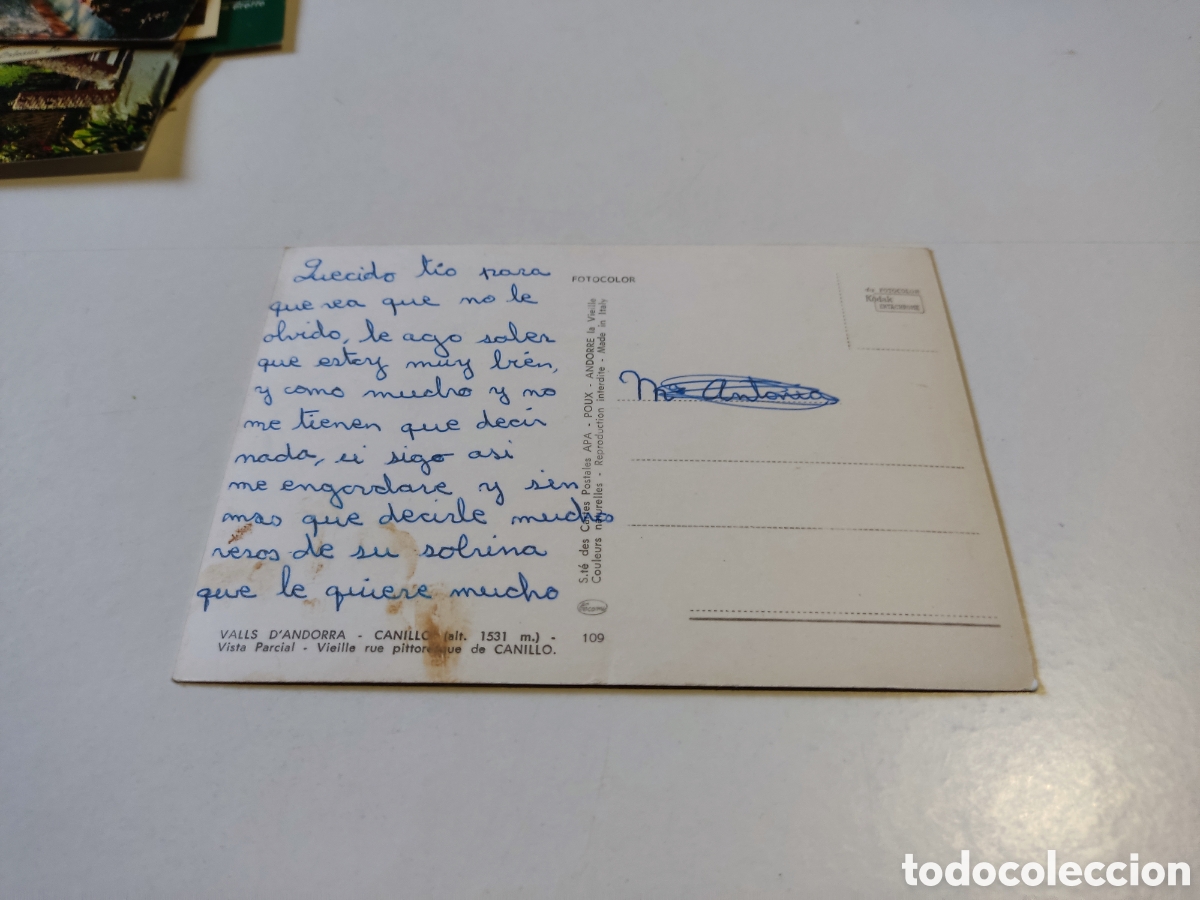 Quecido tio para
que vea que no le
olvido, le ago saber
que estoy muy bién,
y como mucho y no
me tienen que decir
nada, si sigo asi
me engordare y sin
mas que decirle mucho
vesos de su sobrina
que le quiere mucho
VALLS D'ANDORRA - CANILLO (alt. 1531 m.) -
Vista Parcial - Vieille rue pittoresque de CANILLO.
109
FOTOCOLOR
S.té des Cartes Postales APA - POUX - ANDORRE la Vieille
Couleurs naturelles - Reproduction interdite - Made in Italy
Kodak
Mª Antonia
todocoleccion